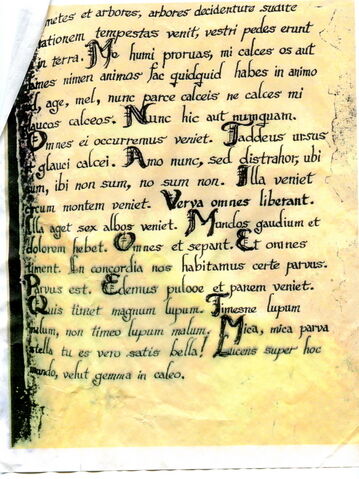 metes et arbores, arbores decidenture sudite
tationem tempestas venit, vestri pedes erunt
in terra. Me humi proruas, mi calces os aut
ames nimen animos fac quidquid habes in animo
d, age, mel, nunc parce calceis ne calces mi
laucos calceos. Nunc hic aut numquam.
Omnes ei occurremus veniet. Taddeus ursus
glauci calcei. Amo nunc, sed distrahor, ubi
sum, ibi non sum, no sum non. Illa veniet
circum montem veniet. Verva omnes liberant.
Illa aget sex albos veniet. Mundos gaudium et
dolorem hebet. Omnes et sepant. Et omnes
timent. In concordia nos habitamus certe parvus.
Parvus est. Edemus pulooe et panem veniet.
Quis timet magnum lupum. Timesne lupum
malum, non timeo lupum malum. Mica, mica parva
stella tu es vero satis bella! Lucens super hoc
mundo, velut gemma in caleo.